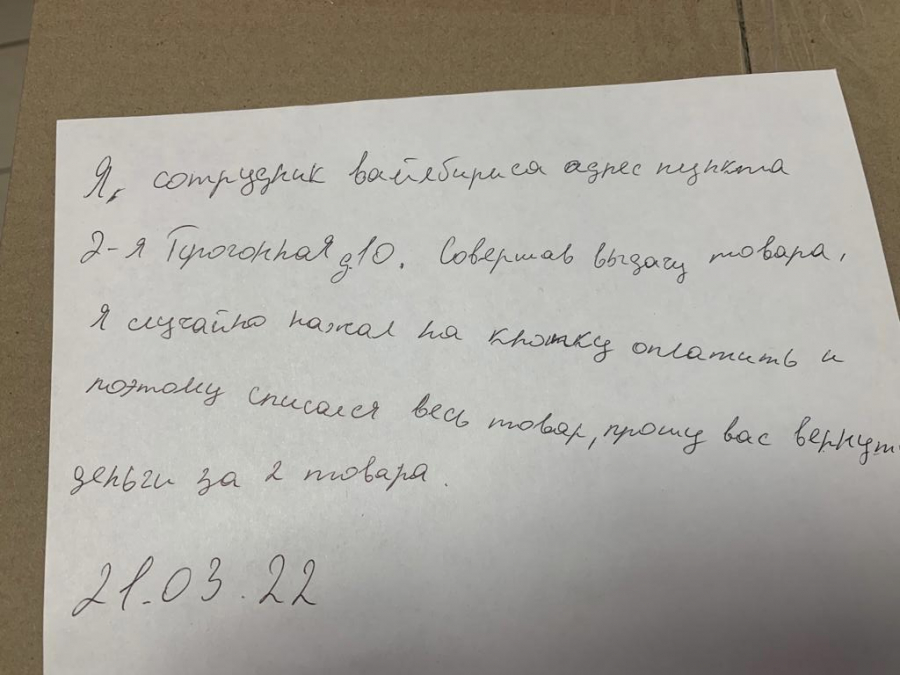 Я, сотрудник вайлбириса адрес пункта
2-я Прогонная д.10. Совершав выдачу товара,
я случайно нажал на кнопку оплатить и
поэтому списался весь товар, прошу вас вернут
деньги за 2 товара.
21.03.22